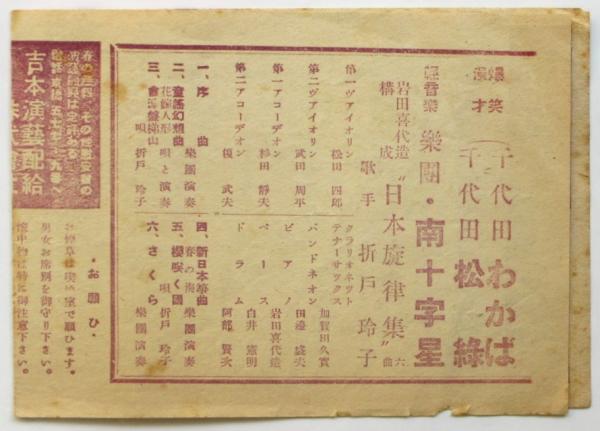 爆笑漫才
千代田わかば
千代田松綠
輕音樂 樂團・南十字星
岩田喜代造構成 "日本旋律集" 六曲
歌手 折戸玲子
第一ヴアイオリン 松田四郎
第二ヴアイオリン 武田周平
第一アコーデオン 杉田靜夫
第二アコーデオン 榎武夫
クラリオネツト テナーサツクス 加賀田久實
バンドネオン 田邊盛夫
ピアノ 岩田喜代造
ベース 白井憲明
ドラム 阿部賢次
一、序曲 樂團演奏
二、童謠幻想曲 花嫁人形 唄と演奏
三、會津磐梯山 唄 折戸玲子
四、新日本箏曲 春の海 樂團演奏
五、櫻咲く國 唄 折戸玲子
六、さくら 樂團演奏
吉本演藝配給
・お願ひ・
お煙草は喫煙室で願ひます。
男女お席別を御守り下さい。
懷中物は特に御注意下さい。